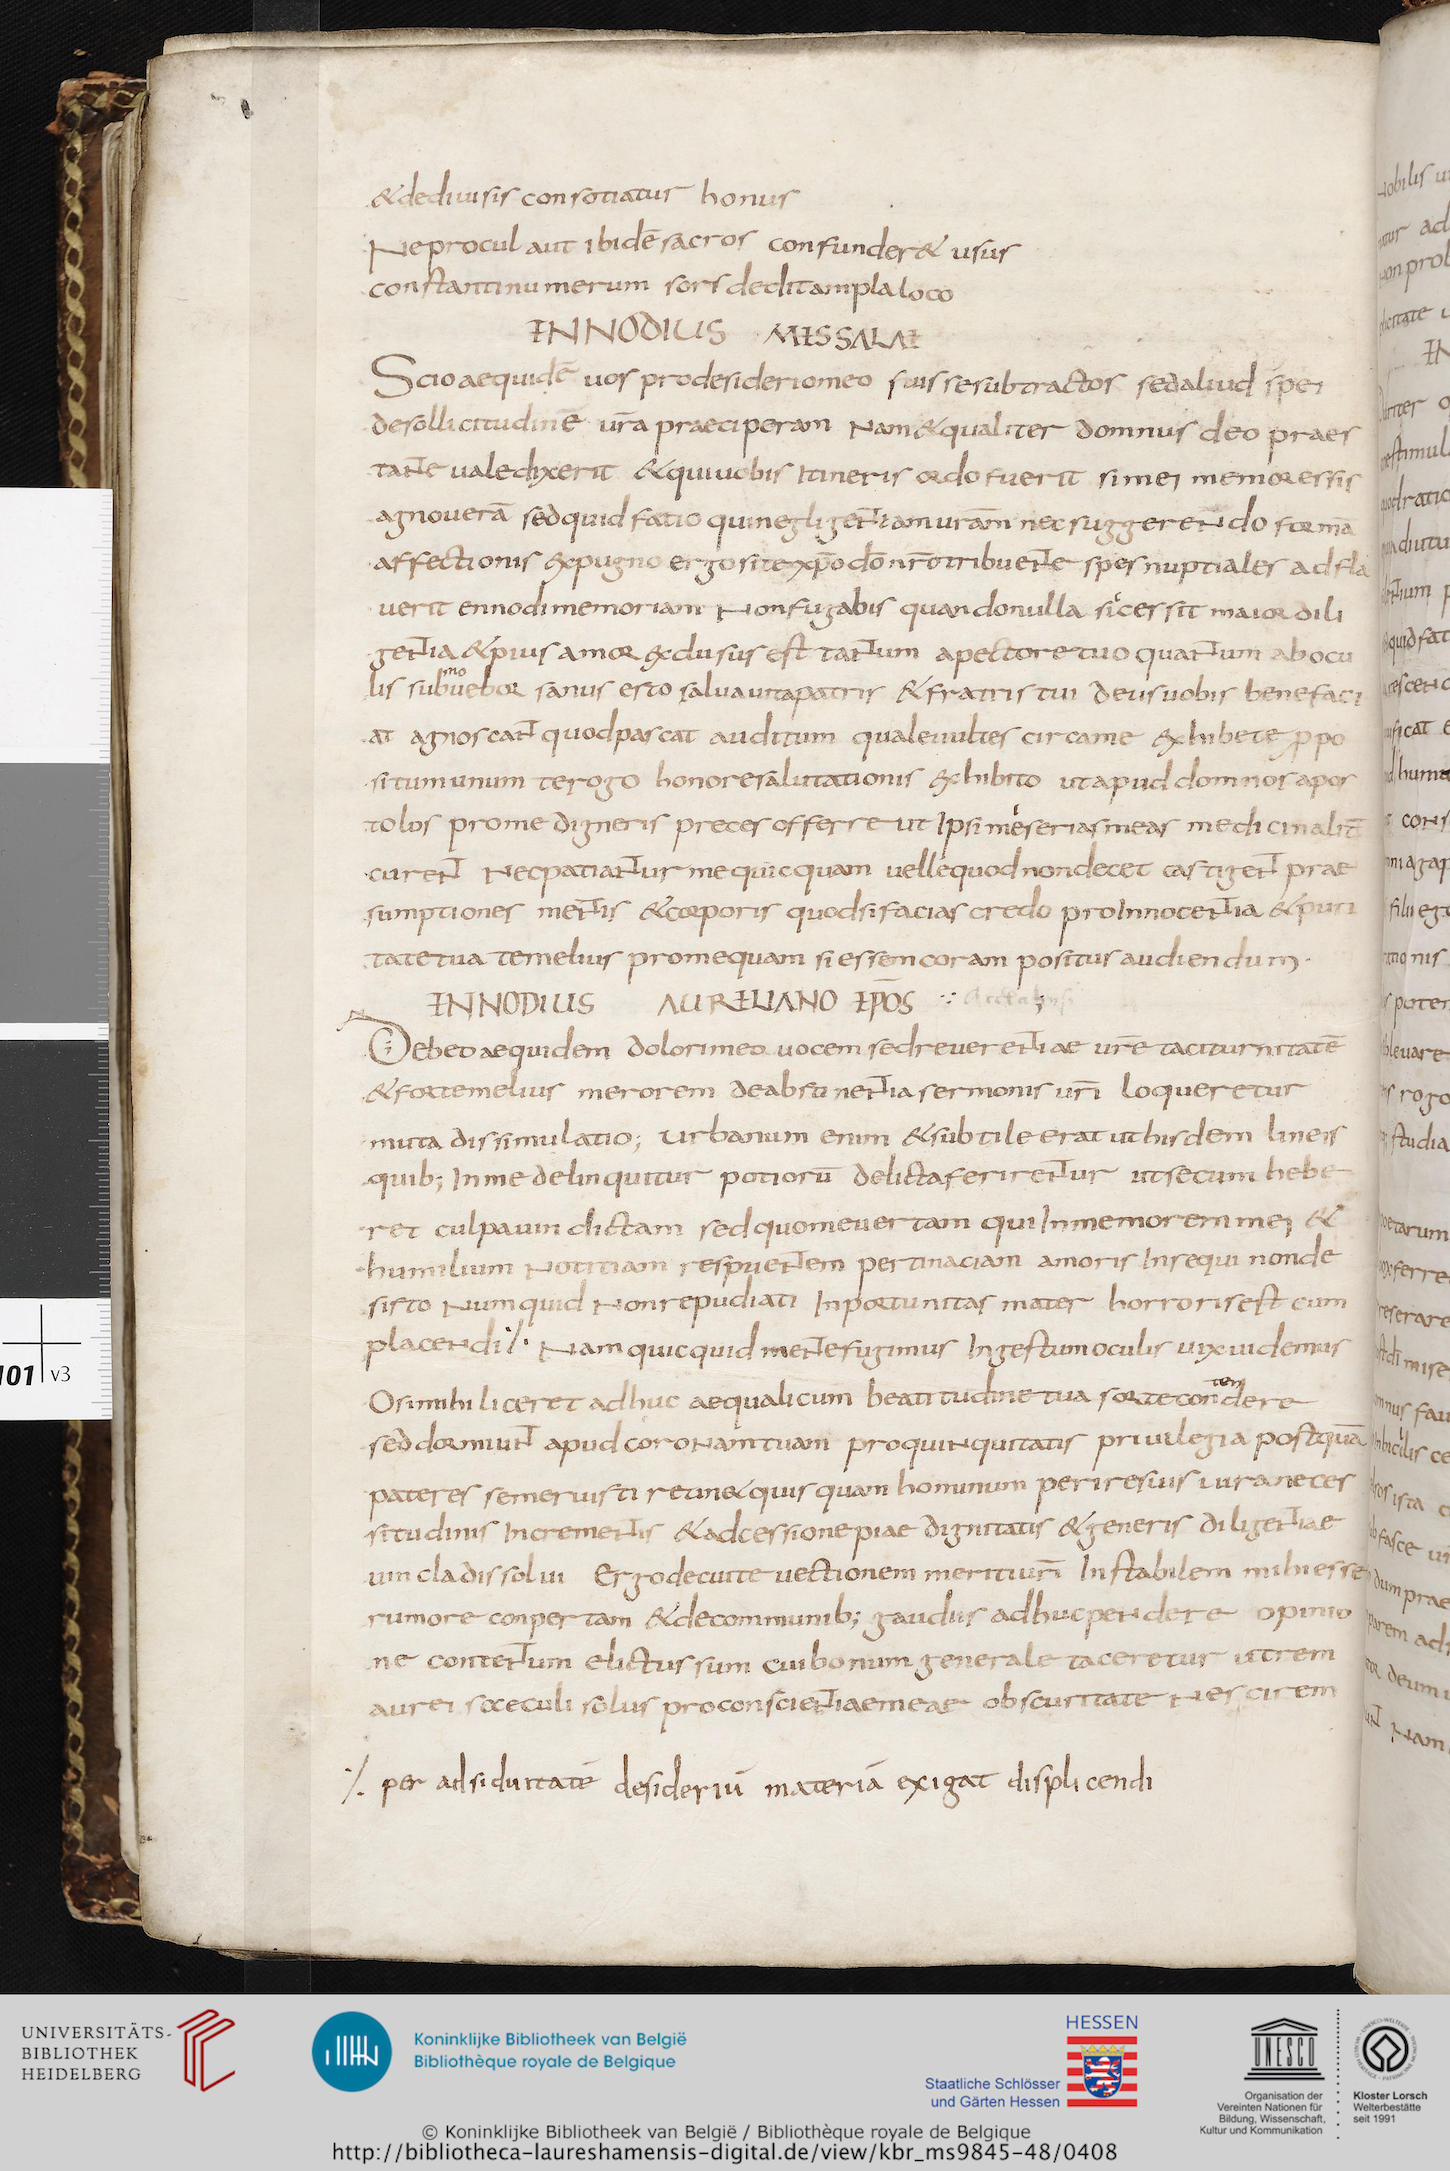 &dediuisis consotiatur honus
Neprocul aut ibidē sacros confunder& usus
constantinumerum sors dedit ampla loco
INNODIUS MESSALAE
Scio aequidē uos prodesideriomeo suis sesubtractos sedaliud spei
desollicitudinē ur̄a praeciperam Nam&qualiter domnus deo praes
tante uale dixerit &quiuobis Itineris ordo fuerit si mei memor essis
agnouerā sed quid fatio quinegligentiamuram̄ nec suggerendo formā
affectionis expugno ergo site xp̄o dō nr̄o tribuente spes nuptiales adfla
uerit ennodi memoriam Nonfugabis quando nulla sicessit maior dili
gentia &pius amor exclusus est tantum apectore tuo quantum abocu
mo
lis subuebor sanus esto salua uita patris &fratris tui deus uobis benefaci
at agnoscant quod pascat auditum quale uultes circa me exhibete ppo
situm unum te rogo honore salutationis exhibito ut apud domnos apos
tolos pro me digneris preces offerre ut Ipsi meserias meas medicinalit̄
curent Nec patiantur me quicquam uelle quod non decet castigent prae
sumptiones mentis &corporis quod si facias credo pro Innocentia &puri
tate tua te melius pro me quam si essem coram positus audiendum.
INNODIUS AURELIANO EPOS̄
Debeo aequidem dolori meo uocem sed reuerentiae ur̄e taciturnitatē
&forte melius merorem de abstinentia sermonis ur̄i loqueretur
muta dissimulatio; Urbanum enim &subtile erat ut hisdem lineis
quib; In me delinquitur potiorū delicta ferirentur ut secum hebe
ret culpa uindictam sed quo me uertam qui Inmemorem mei &
humilium Notitiam respuentem pertinaciam amoris Insequi non de
sisto Numquid Non repudiati Inportunitas mater horroris est cum
placendi ⁒ Nam quicquid mente fugimus Ingestum oculis uix uidemus
ten
O si mihi liceret adhuc aequali cum beatitudine tua sorte condere
sed dormiunt apud coronam tuam proquinquitatis priuilegia postquā
pater esse meruisti retin& quis quam hominum perire suis iura neces
situdinis Incrementis &adcessione piae dignitatis &generis diligentiae
uincla dissolui Ergo de cuite uectionem meriti ur̄i Instabilem mihi esse
rumore conpertam &de communib; gaudiis adhuc pendere opinio
ne contentum elictus sum cui bonum generale taceretur ut rem
aurei soeculi solus pro conscientiae meae obscuritate Nescirem
⁒ per adsiduitatē desideriū materiā exigat displicendi
UNIVERSITÄTS-
BIBLIOTHEK
HEIDELBERG
Koninklijke Bibliotheek van België
Bibliothèque royale de Belgique
HESSEN
Staatliche Schlösser
und Gärten Hessen
UNESCO
Organisation der
Vereinten Nationen für
Bildung, Wissenschaft,
Kultur und Kommunikation
Kloster Lorsch
Welterbestätte
seit 1991
© Koninklijke Bibliotheek van België / Bibliothèque royale de Belgique
http://bibliotheca-laureshamensis-digital.de/view/kbr_ms9845-48/0408
101 v3